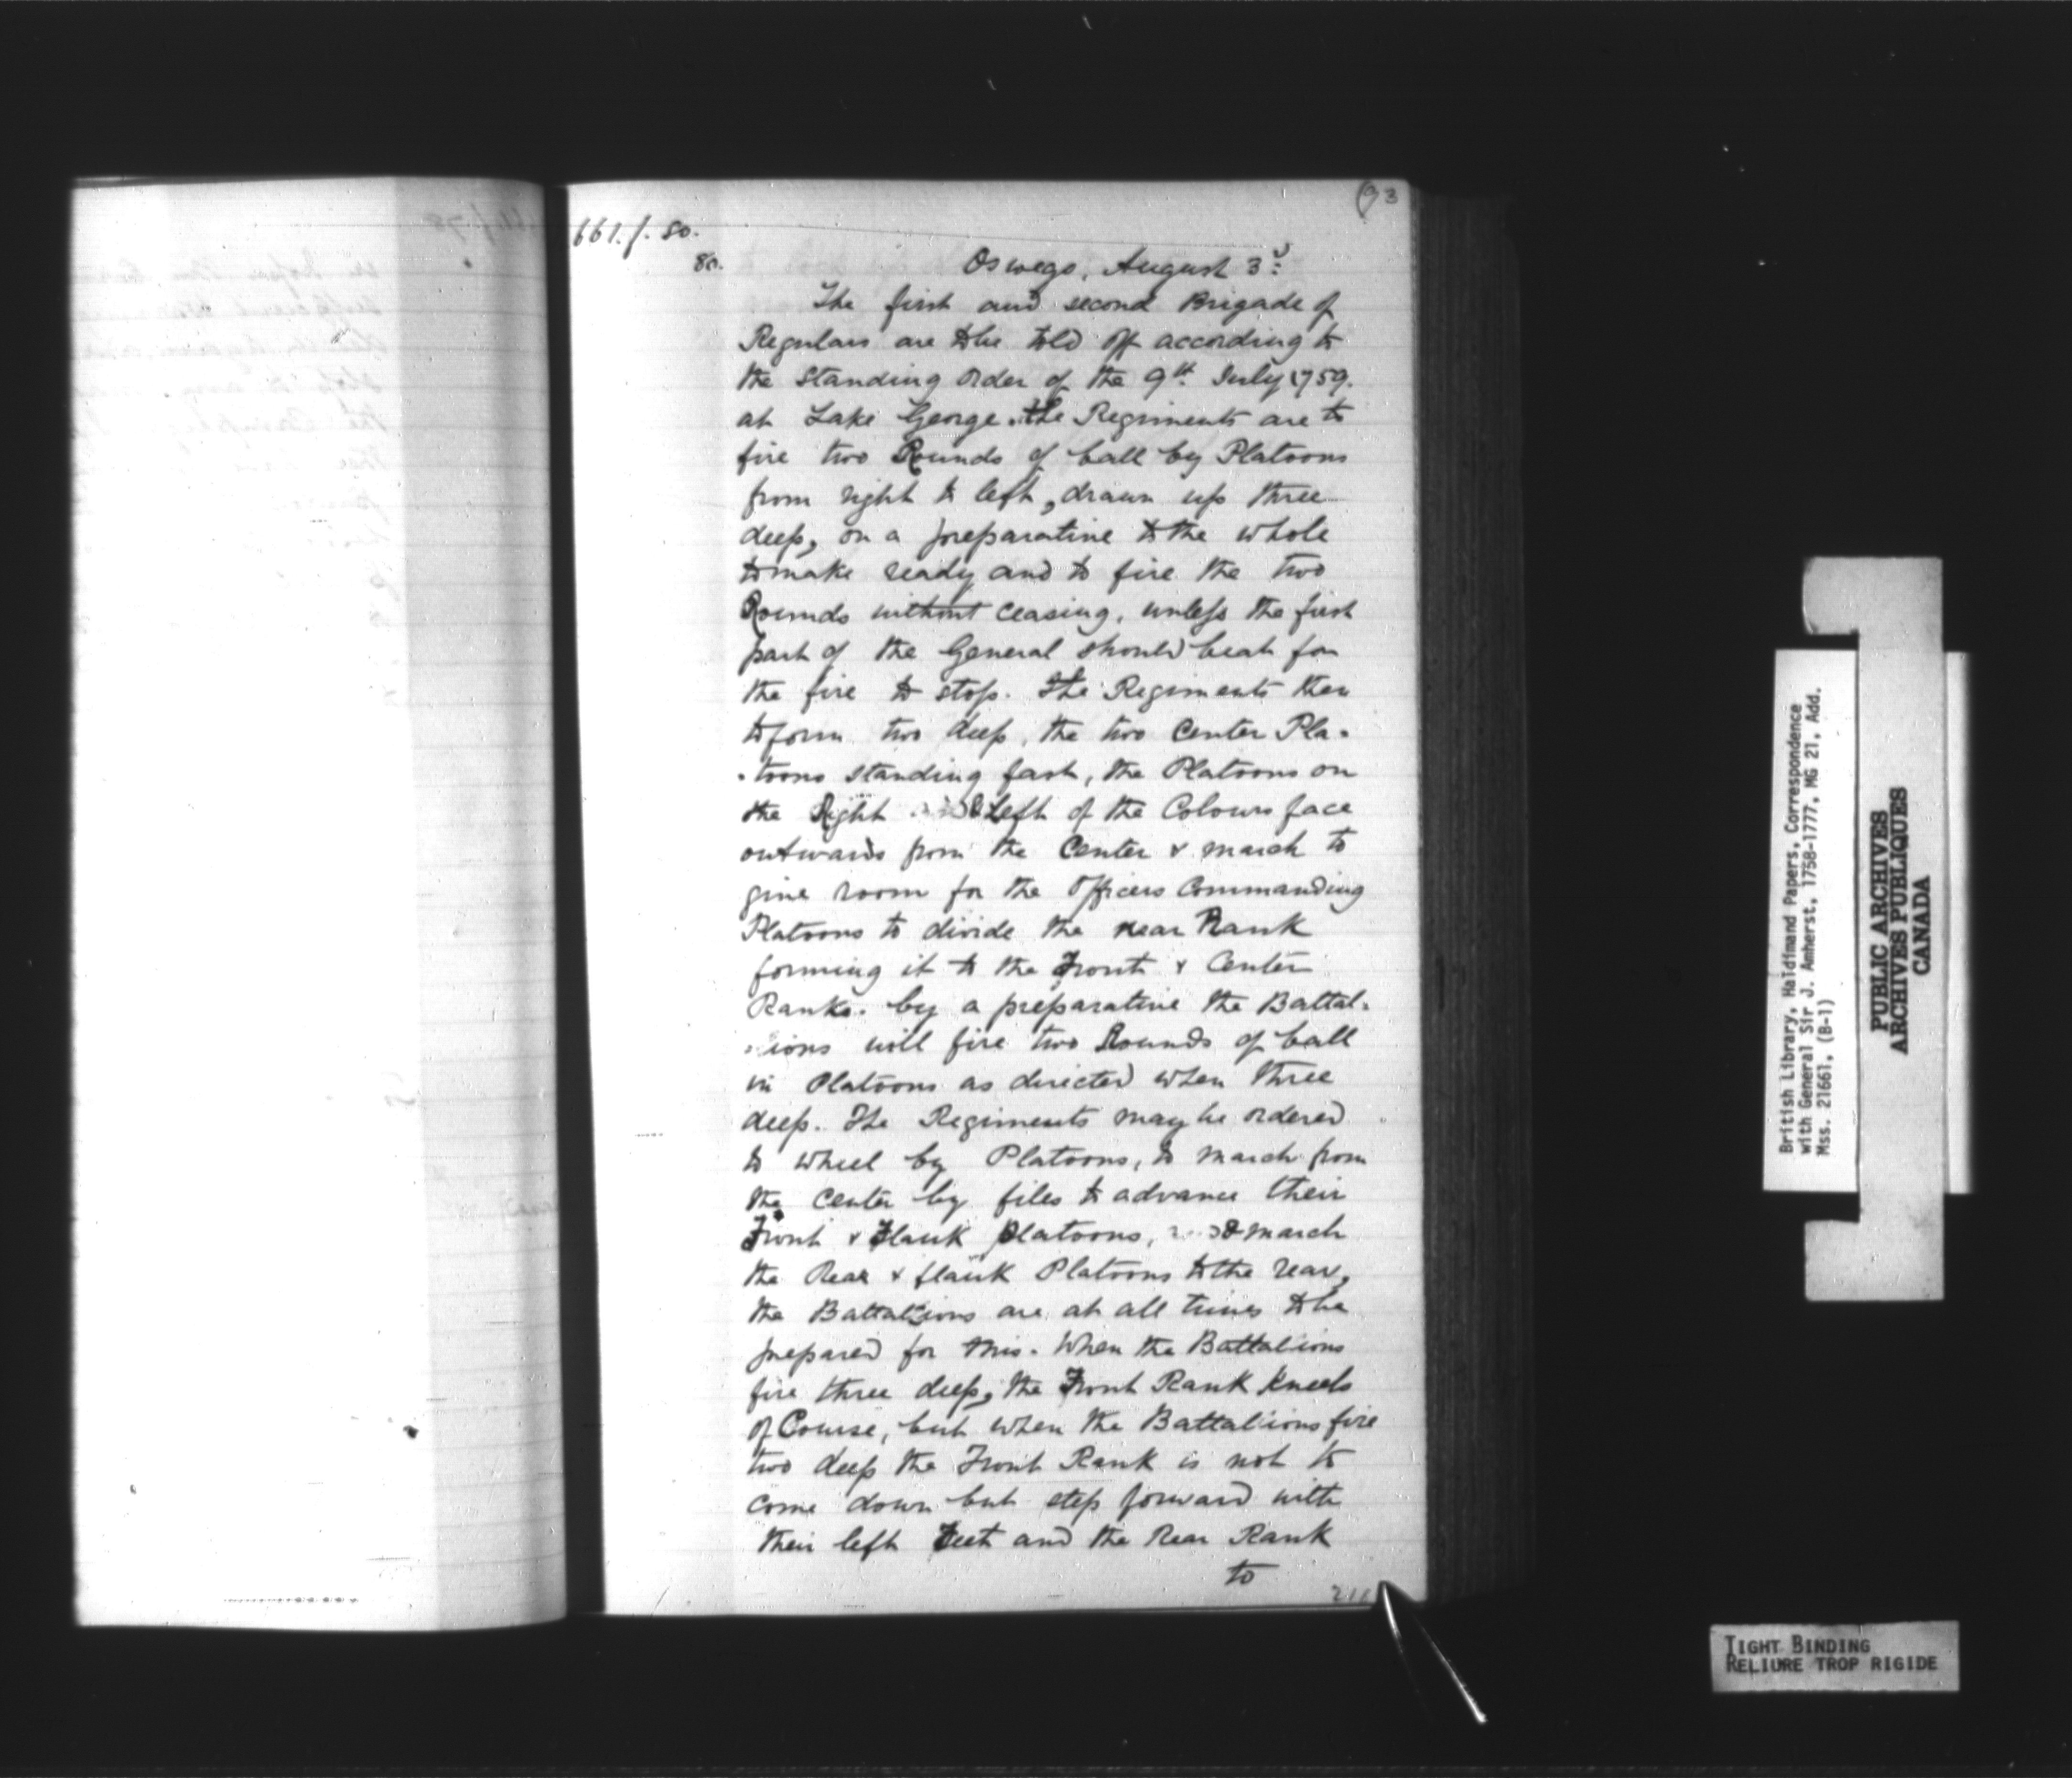 (93
661. f. 80.
80.
Oswego, August 3d:
The first and second Brigade of
Regulars are to be told off according to
the Standing Order of the 9th July 1759.
at Lake George. the Regiments are to
fire two Rounds of ball by Platoons
from right to left, drawn up three
deep, on a preparative to the whole
to make ready and to fire the two
Rounds without ceasing, unless the first
part of the General should beat for
the fire to stop. The Regiments then
to form two deep, the two Center Pla-
-toons standing fast, the Platoons on
the Right & Left of the Colours face
outwards from the Center & march to
give room for the Officers Commanding
Platoons to divide the rear Rank
forming it to the Front & Center
Ranks. by a preparative the Battal-
-ions will fire two Rounds of ball
in Platoons as directed when three
deep. The Regiments may be ordered
to wheel by Platoons, to march from
the Center by files to advance their
Front & Flank Platoons, & march
the Rear & flank Platoons to the rear,
the Battalions are at all times to be
prepared for this. When the Battalions
fire three deep, the Front Rank kneels
of Course, but when the Battalions fire
two deep the Front Rank is not to
come down but step forward with
their left Feet and the Rear Rank
to
211
British Library, Haldimand Papers, Correspondence
with General Sir J. Amherst, 1758-1777, MG 21, Add.
Mss. 21661, (B-1)
PUBLIC ARCHIVES
ARCHIVES PUBLIQUES
CANADA
TIGHT BINDING
RELIURE TROP RIGIDE